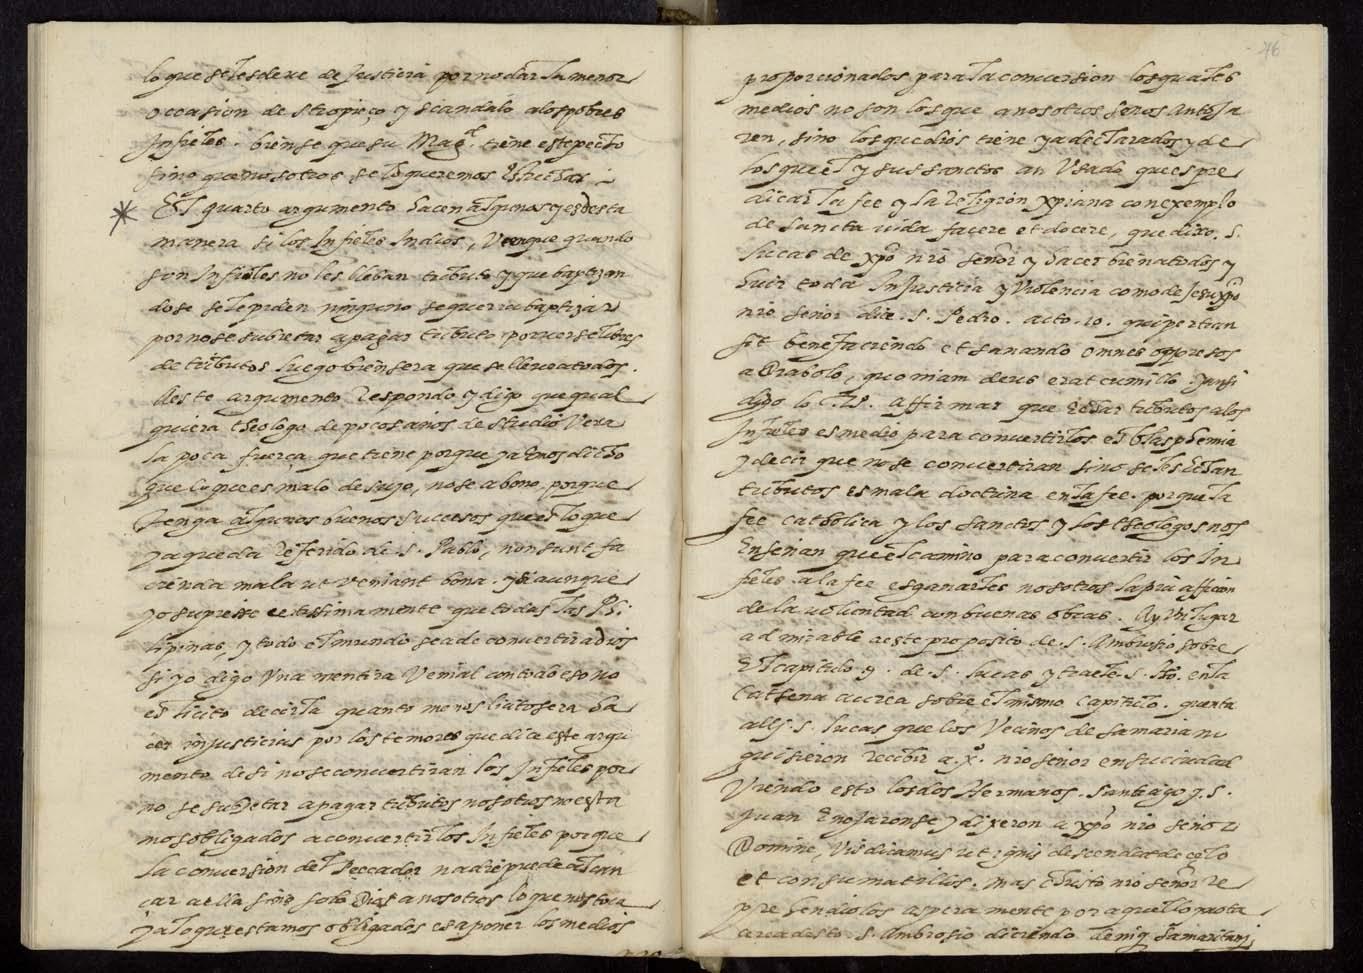 lo que se les deve de Justicia por no dar la menor
occasion de stropieço y scandalo a los pobres
Infieles. bien se que su Magt. tiene este pecho
sino que nosotros se lo queremos
El quarto argumento hacen algunos y es desta
manera si los Infieles Indios, veen que quando
son Infieles no les llevan tributo y que baptizan
dose se le piden ninguno se querra baptizar
por no se subietar a pagar tributo por verse libres
de tributos luego bien sera que se lleve a todos.
A este argumento Respondo y digo que qual
quiera theologo de pocos años de studio Vera
la poca fuerça que tiene porque ya emos dicho
que lo que es malo de suyo, no se abona porque
tenga algunos buenos sucesos que es lo que
ya queda Referido de S. Pablo, non sunt fa
cienda mala ut veniant bona. y si aunque
yo supiesse certissimamente que todas las Phi
lipinas, y todo el mundo se a de convertir a dios
si yo digo Una mentira Venial con todo eso no
es licito decirla quanto menos licito sera ha
cer injusticias por los temores que dice este argu
mento de si no se convertiran los Infieles por
no se subjetar a pagar tributos nosotros no esta
mos obligados a convertir los Infieles porque
la conversion del Peccador nadie puede alcan
çar a ella sino solo Dios a nosotros lo que nos toca
y a lo que estamos obligados es a poner los medios
76
proporcionados para la conversion los quales
medios no son los que a nosotros se nos antoja
ren, sino los que dios tiene ya declarados y de
los que el y sus sanctos an Usado que es pre
dicar la fee y la Religion xpiana con exemplo
de sancta vida facere et docere, que dixo. S.
lucas de xpo nro señor y hacer bien a todos y
huir toda Injusticia y Violencia como de Jesuxpo
nro señor dice. S. Pedro. acto. 10. qui pertran
sit benefaciendo et sanando omnes oppresos
a Diabolo, quoniam deus erat cum illo.
digo lo affirmar que echar tributos a los
Infieles es medio para convertirlos es blasphemia
y decir que no se convertiran si no se les echan
tributos es mala doctrina en la fee. porque la
fee catholica y los sanctos y los theologos nos
Enseñan que el camino para convertir los In
fieles a la fee es ganarles nosotros la pia afficion
de la voluntad con buenas obras. Ay Un lugar
admirable a este proposito de. S. Ambrosio sobre
El capitulo 9. de. S. Lucas y traele. S. Tho. en la
Cathena aurea sobre el mismo Capitulo. quenta
alli. S. Lucas que los Vecinos de samaria no
quisieron recibir a. xo. nro señor en su ciudad
Viendo esto los dos Hermanos. Santiago y. S.
Juan Enojaronse y dixeron a xpo nro señor
Domine, Vis dicamus ut ignis descendat de cęlo
et consumat illos. mas christo nro señor re
prehendiolos asperamente por aquello nota
acerca desto. S. Ambrosio diciendo deniq samaritani